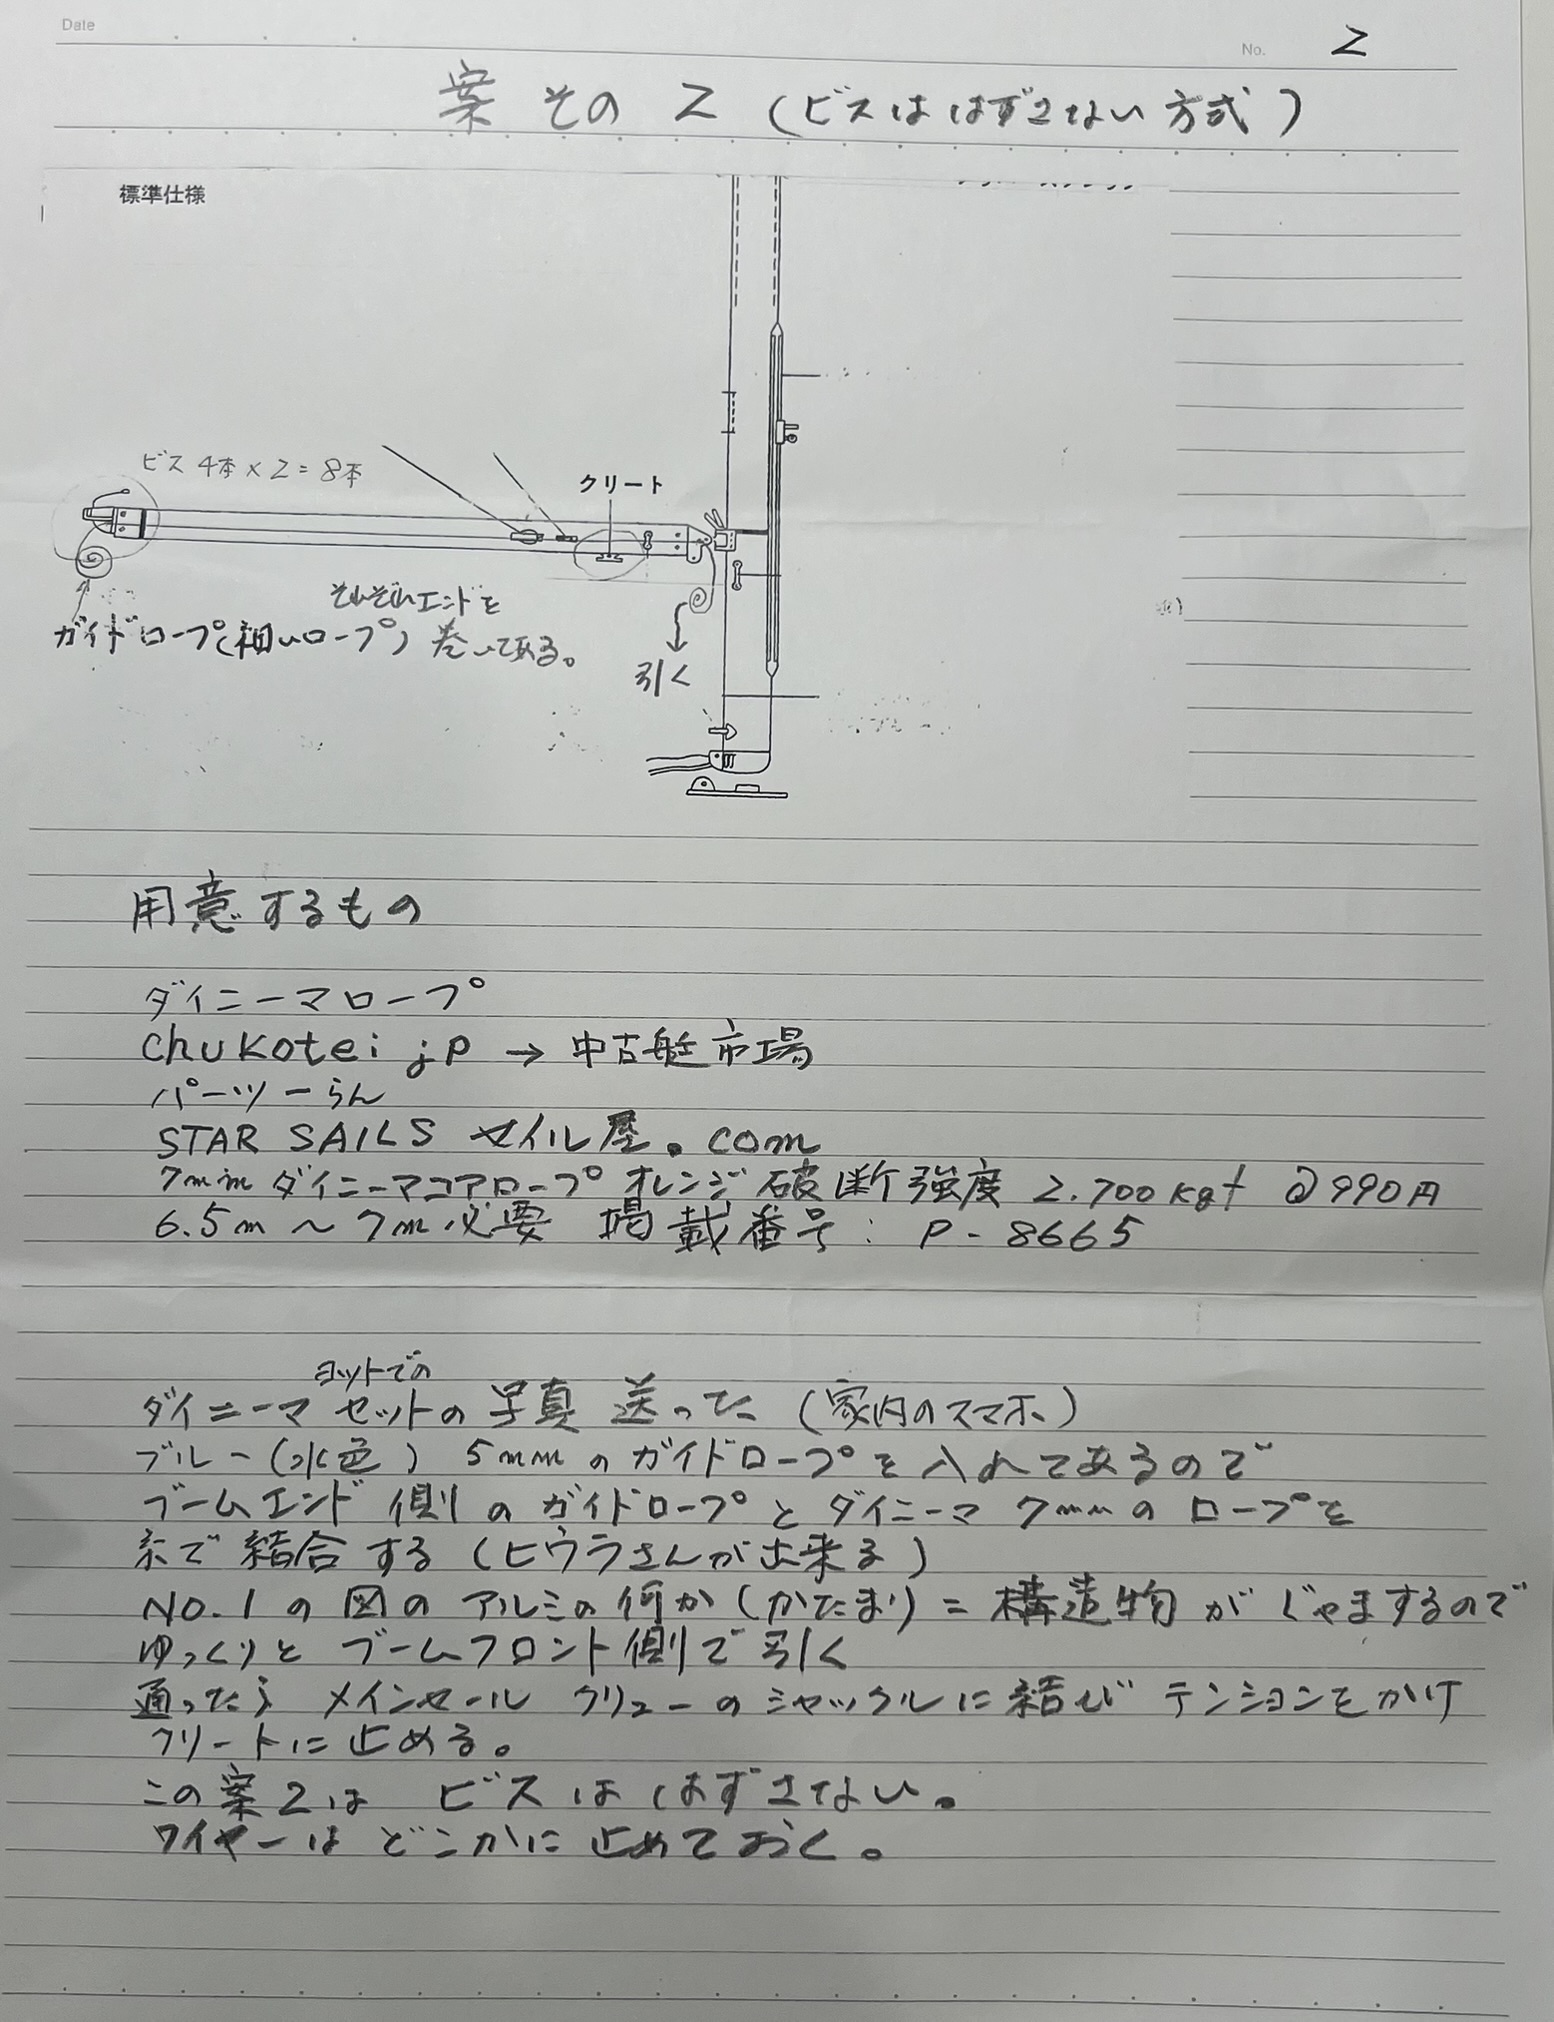 Date
No. 2
案 その 2 (ビスは はずさない 方式)
標準仕様
ビス 4本 × 2 = 8本
クリート
それぞれエンドを
ガイドロープ(細いロープ) 巻いてある。
引く
用意するもの
ダイニーマロープ
chukotei jp → 中古艇市場
パーツ一らん
STAR SAILS セイル屋。com
7mm ダイニーマコアロープ オレンジ 破断強度 2.700kgf @990円
6.5m ~ 7m必要 掲載番号: P-8665
ヨットでの
ダイニーマ セットの 写真 送った (家内のスマホ)
ブルー(水色) 5mmのガイドロープを入れてあるので
ブームエンド側のガイドロープとダイニーマ 7mmのロープを
糸で結合する (ヒウラさんが出来る)
NO.1の図のアルミの何か(かたまり)=構造物がじゃまするので
ゆっくりと ブームフロント側で引く
通ったら メインセール クリューのシャックルに結び テンションをかけ
クリートに止める。
この案2は ビスははずさない。
ワイヤーは どこかに止めておく。